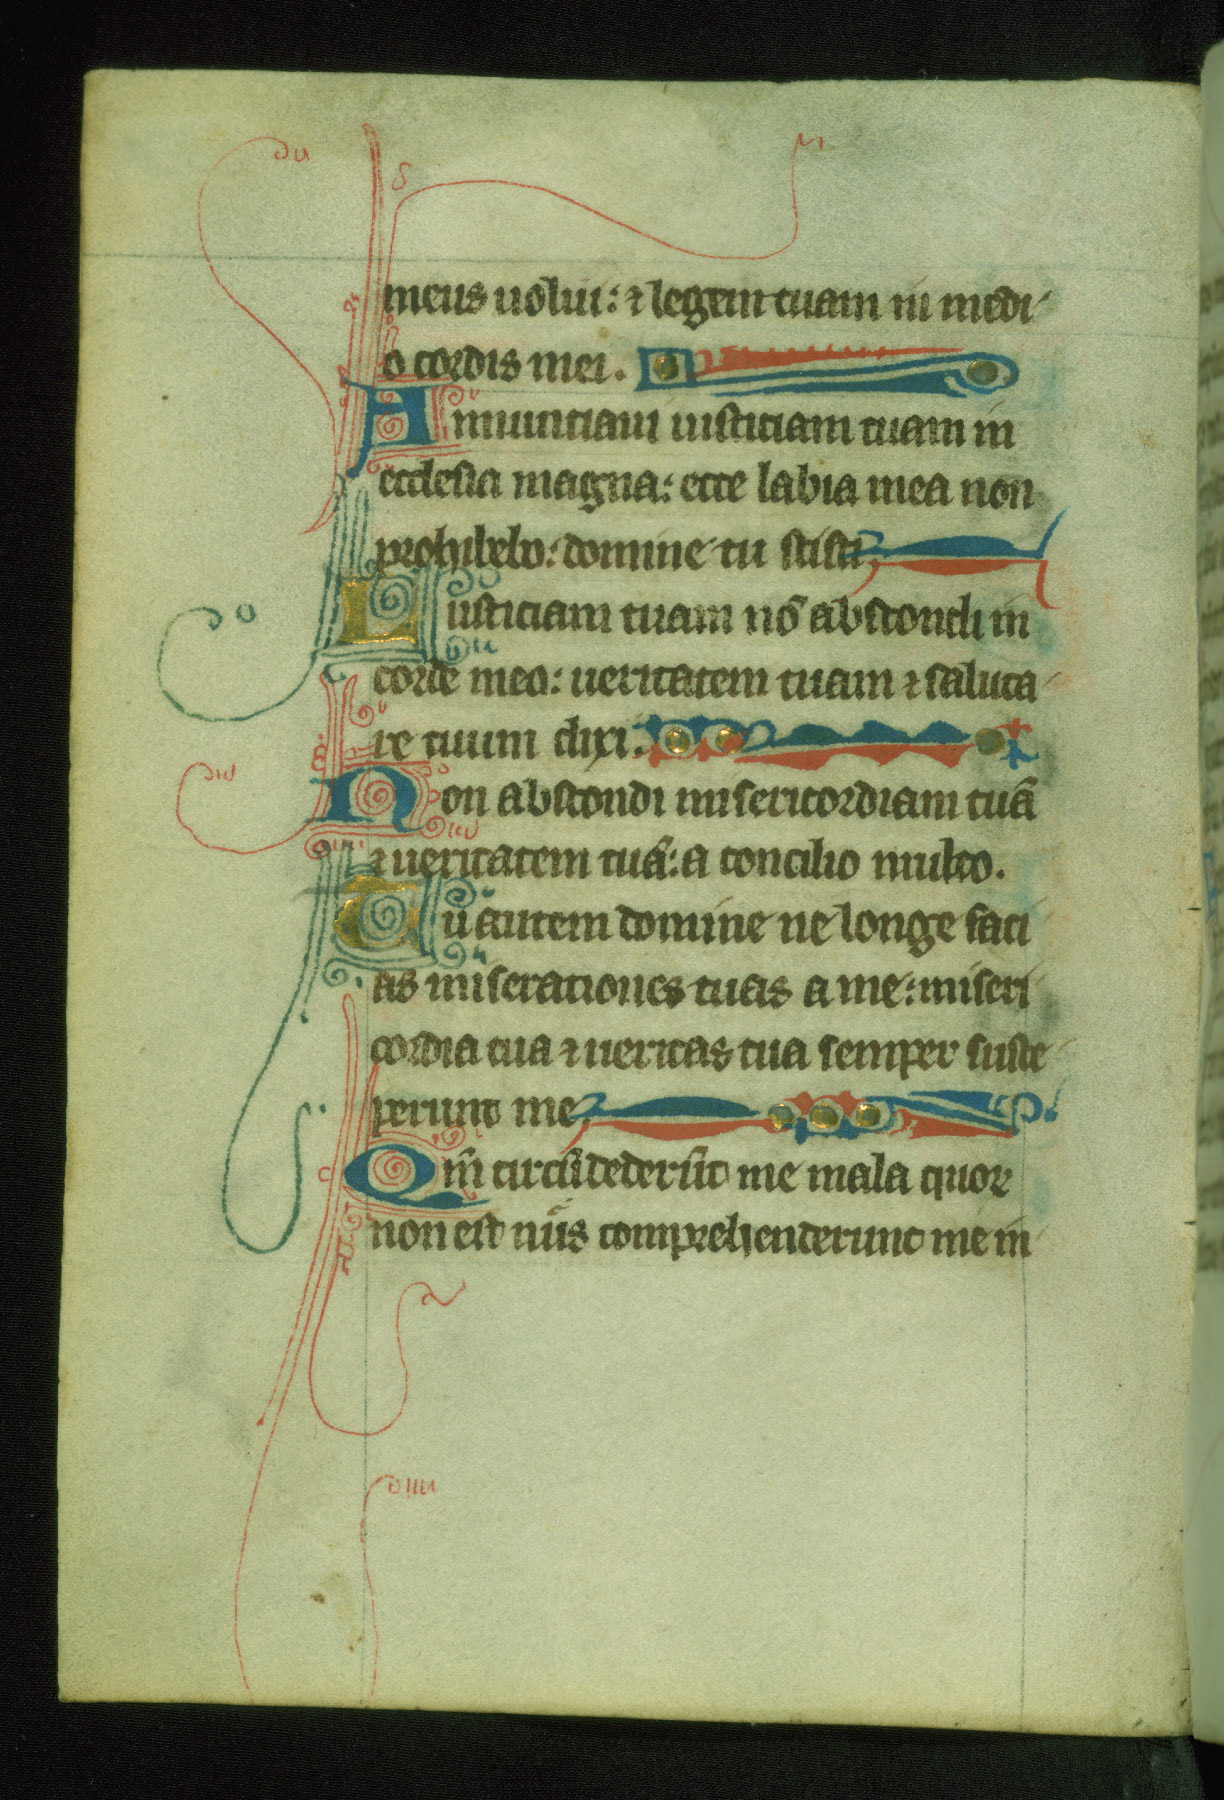 meus uolui: ⁊ legem tuam in medi
o cordis mei.
Annunciaui iusticiam tuam in
ecclesia magna: ecce labia mea non
prohibebo: domine tu scisti.
Iusticiam tuam nō abscondi in
corde meo: ueritatem tuam ⁊ saluta
re tuum dixi.
Non abscondi misericordiam tuā
⁊ ueritatem tuā: a concilio multo.
Tu autem domine ne longe faci
as miserationes tuas a me: miseri
cordia tua ⁊ ueritas tua semper susce
perunt me.
Qm̄ circūdederūt me mala quor
non est nūs comprehenderunt me in